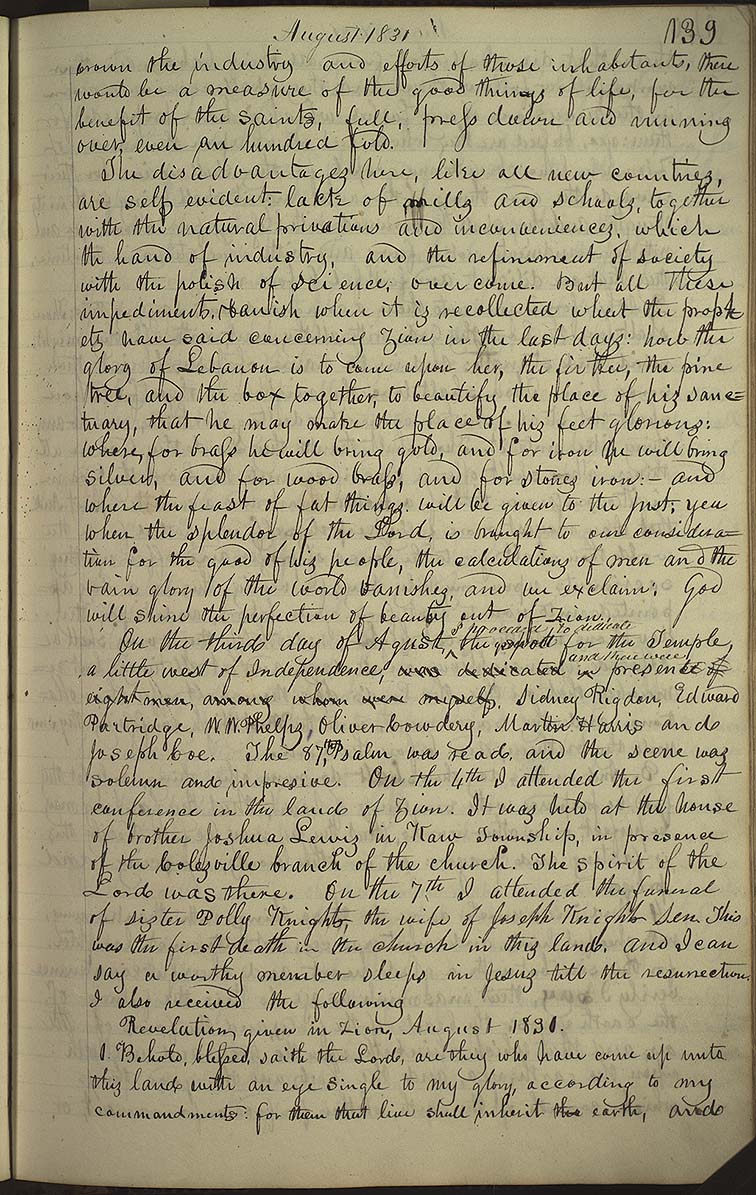 August 1831
139
crown the industry and efforts of those inhabitants, there
would be a measure of the good things of life, for the
benefit of the saints, full, press down and running
over, even an hundred fold.
The disadvantages here, like all new countries,
are self evident: lack of mills and schools, together
with the natural privations and inconveniences, which
the hand of industry, and the refinement of society
with the polish of science, overcome. But all these
impediments, vanish when it is recollected what the proph-
ets have said concerning Zion in the last days: how the
glory of Lebanon is to come upon her, the fir tree, the pine
tree, and the box together, to beautify the place of his sanc=
tuary, that he may make the place of his feet glorious:
where, for brass he will bring gold, and for iron he will bring
silver, and for wood brass, and for stones iron:— and
where the feast of fat things will be given to the Just; yea
when the splendor of the Lord, is brought to our considera=
tion for the good of his people, the calculations of men and the
vain glory of the world vanishes, and we exclaim: God
will shine the perfection of beauty out of Zion.
I proceeded to dedicate
On the third day of Agust, the spott for the Temple,
and there were
a little west of Independence, was dedicated in presence of
eight men, among whom were myself, Sidney Rigdon, Edward
Partridge, W. W. Phelps, Oliver Cowdery, Martin Harris and
Joseph Coe. The 87,th Psalm was read, and the scene was
solemn and impresive. On the 4th I attended the first
conference in the land of Zion. It was held at the house
of brother Joshua Lewis in Kaw Township, in presence
of the Colesville branch of the church. The spirit of the
Lord was there. On the 7th I attended the funeral
of sister Polly Knight, the wife of Joseph Knight Sen. This
was the first death in the church in this land, and I can
say a worthy member sleeps in Jesus till the resurrection.
I also received the following
Revelation, given in Zion, August 1831.
1. Behold, blessed, saith the Lord, are they who have come up unto
this land with an eye single to my glory, according to my
commandments: for them that live shall inherit the earth, and